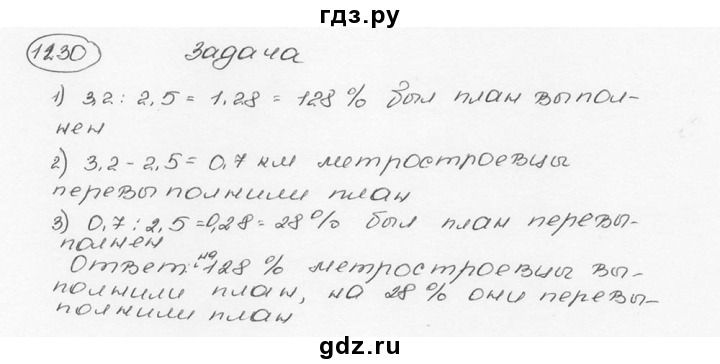 гдз.ру
1230 Задача
1) 3,2 : 2,5 = 1,28 = 128 % был план выпол-
нен
2) 3,2 - 2,5 = 0,7 км метростроевцы
перевыполнили план
3) 0,7 : 2,5 = 0,28 = 28 % был план перевы-
полнен
Ответ: на 128 % метростроевцы вы-
полнили план, на 28 % они перевы-
полнили план
gdz.ru